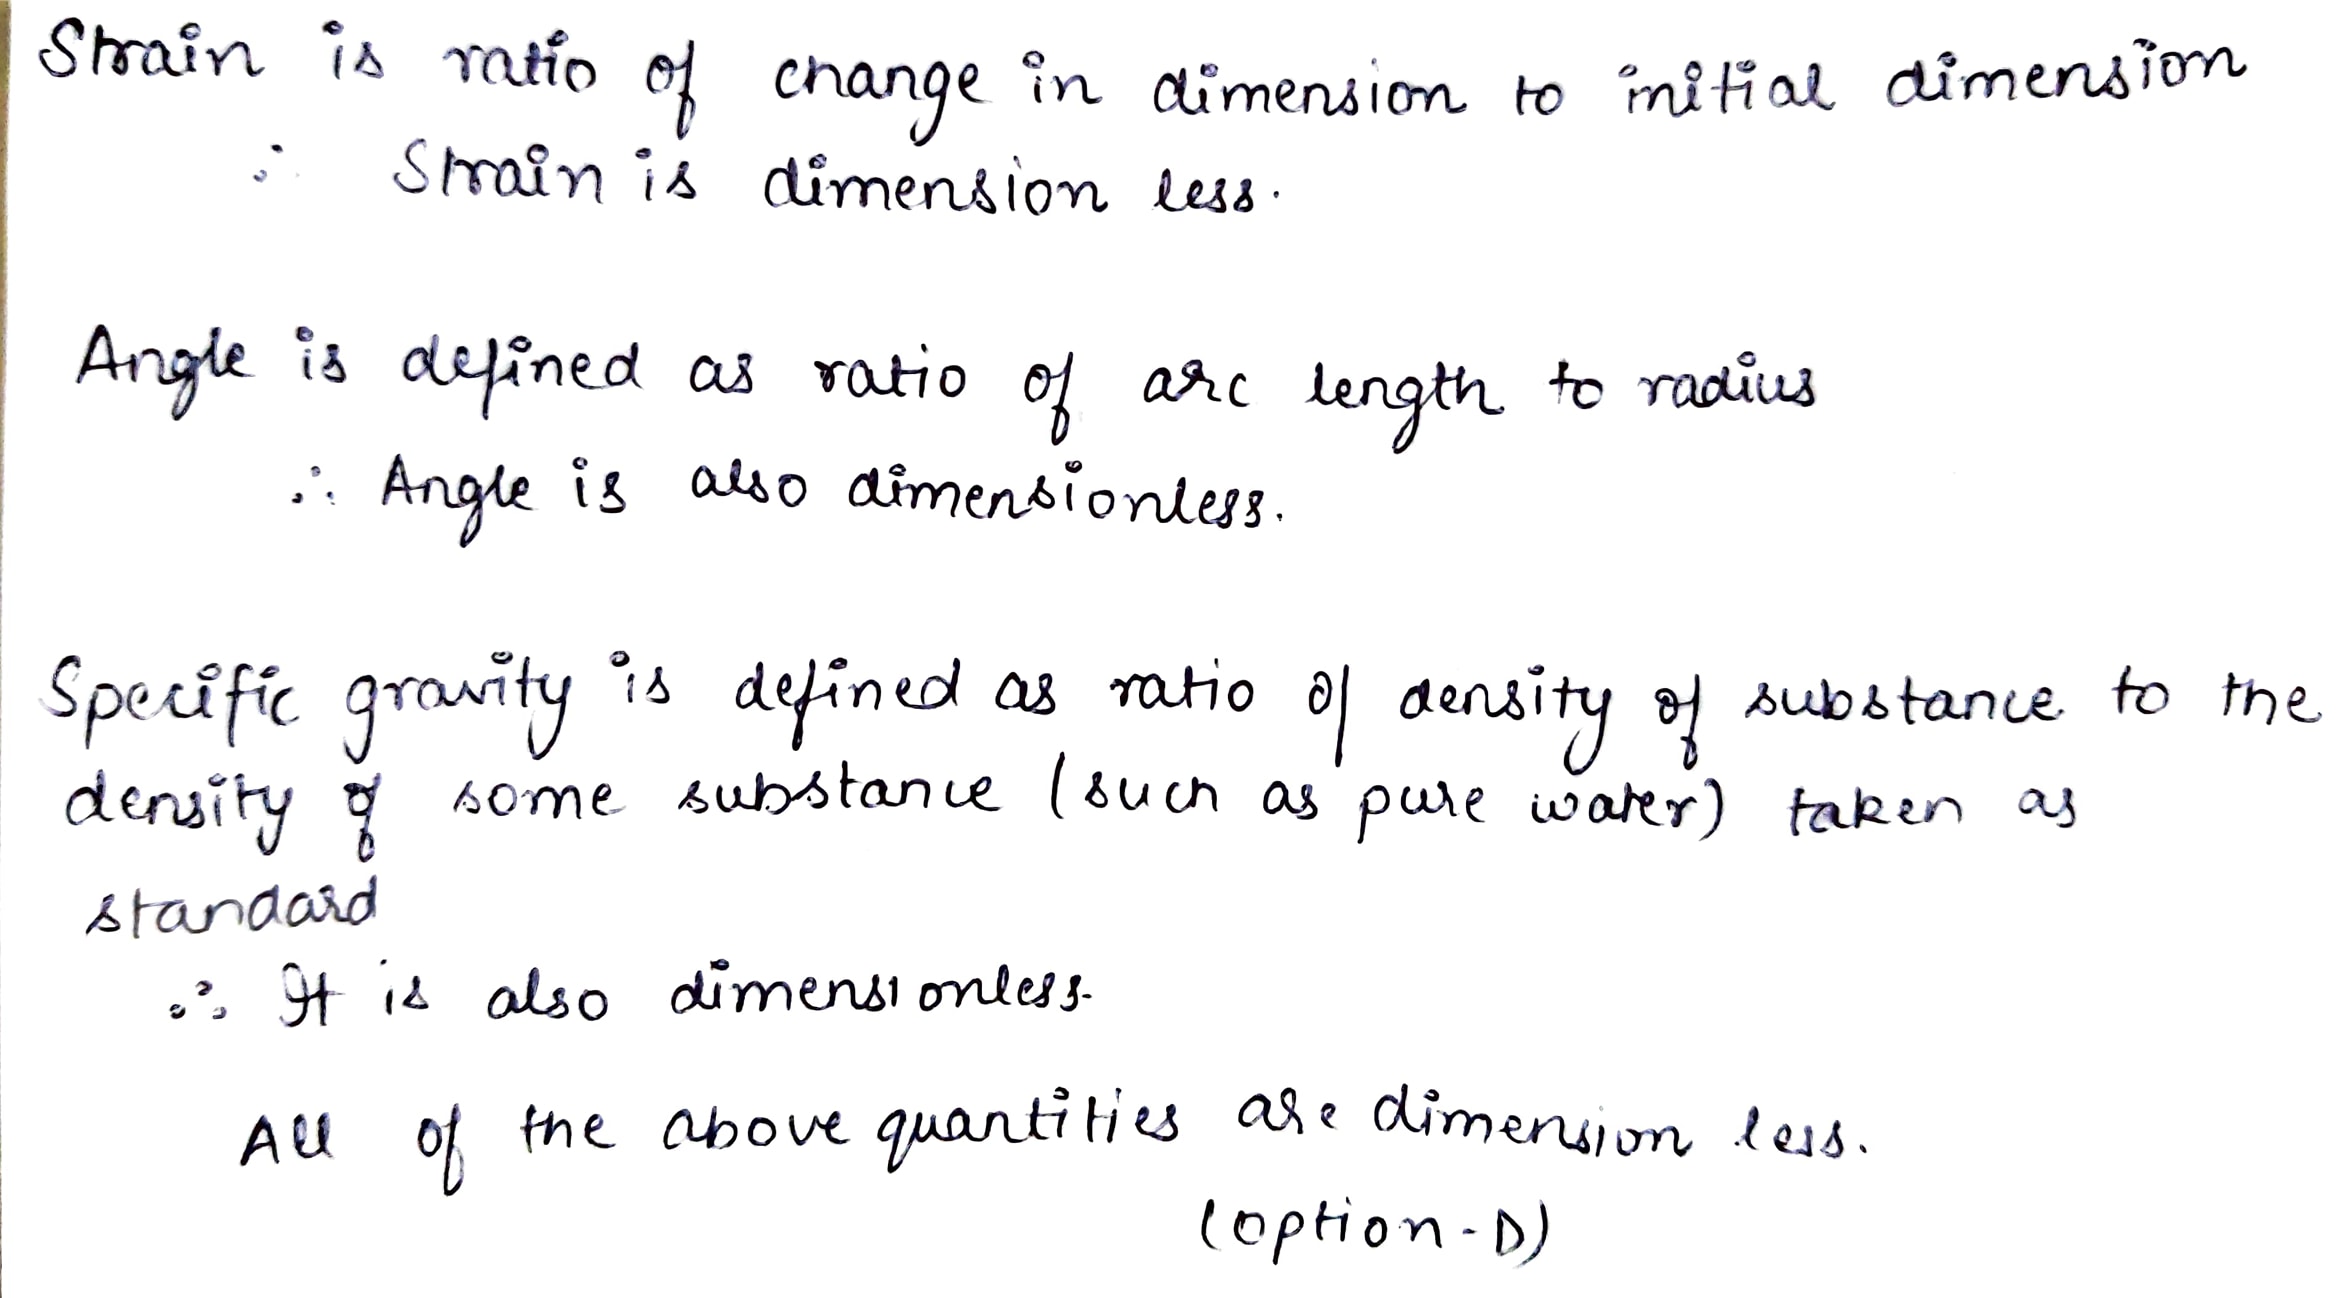 Strain is ratio of change in dimension to initial dimension
∴ Strain is dimension less.
Angle is defined as ratio of arc length to radius
∴ Angle is also dimensionless.
Specific gravity is defined as ratio of density of substance to the
density of some substance (such as pure water) taken as
standard
∴ It is also dimensionless.
All of the above quantities are dimension less.
(option-D)